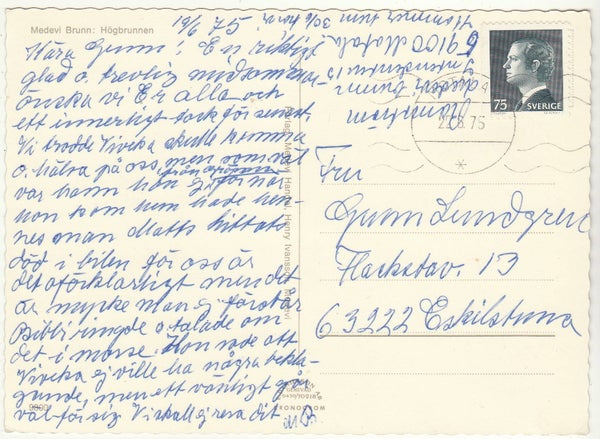 Medevi Brunn: Högbrunnen
19/6 75
Kära Gunn! En riktigt
glad o. trevlig midsommar
önska vi Er alla och
ett innerligt tack för senast.
Vi trodde Viveka skulle komma
o. hälsa på oss, men som väl
var hann hon ej för när
hon kom hem hade hen-
nes man Matts hittats
död i bilen för oss är
det oförklarligt men det
är mycke man ej förstår
Bibbi ringde o. talade om
det i morse. Hon sade att
Viveka ej ville ha några bekla-
gande, men ett vänligt går
väl för sig. Vi skall ej resa dit
Medevi Brunn
59100 Motala
Kommer hem 30/6
75
SVERIGE
75
Fru
Gunn Lundgren
Hackstav. 13
63222 Eskilstuna